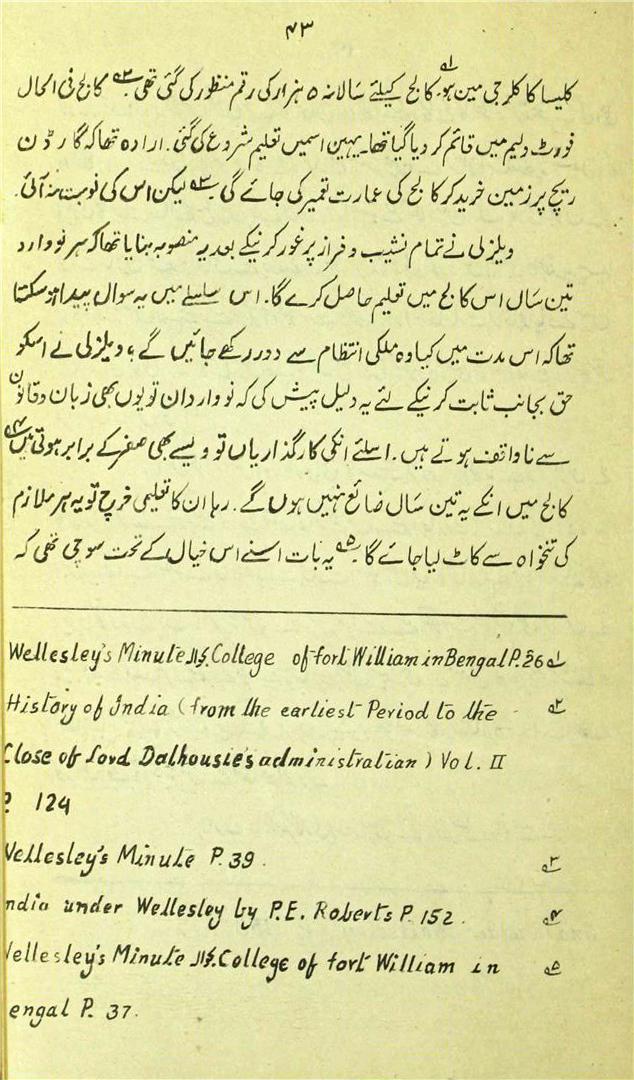 ۴۳
کلیسا کا کلرجی مین ہو۔ ۱؎ کالج کیلئے سالانہ ۵ ہزار کی رقم منظور کی گئی تھی ۲؎ کالج فی الحال
فورٹ ولیم میں قائم کر دیا گیا تھا۔ یہیں اسمیں تعلیم شروع کی گئی۔ ارادہ تھا کہ گارڈن
ریچ پر زمین خرید کر کالج کی عمارت تعمیر کی جائے گی ۳؎ لیکن اس کی نوبت نہ آئی۔
ویلزلی نے تمام نشیب و فراز پر غور کرنیکے بعد یہ منصوبہ بنایا تھا کہ ہر نو وارد
تین سال اس کالج میں تعلیم حاصل کرے گا۔ اس سلسلے میں یہ سوال پیدا ہو سکتا
تھا کہ اس مدت میں کیا وہ ملکی انتظام سے دور رکھے جائیں گے؟ ویلزلی نے اسکو
حق بجانب ثابت کرنیکے لئے یہ دلیل پیش کی کہ نو واردان تو یوں بھی زبان و قانون
سے ناواقف ہوتے ہیں۔ اسلئے انکی کارگذاریاں تو ویسے بھی صفر کے برابر ہوتی ہیں ۴؎
کالج میں انکے یہ تین سال ضائع نہیں ہوں گے۔ رہا ان کا تعلیمی خرچ تو یہ ہر ملازم
کی تنخواہ سے کاٹ لیا جائے گا ۵؎ یہ بات اسنے اس خیال کے تحت سوچی تھی کہ
Wellesley's Minute College of fort William in Bengal P. 26 ۱؎
History of India (from the earliest Period to the ۲؎
Close of Lord Dalhousie's administration) Vol. II
P 124
Wellesley's Minute P. 39. ۳؎
ndia under Wellesley by P.E. Roberts P. 152. ۴؎
Wellesley's Minute College of fort William in ۵؎
engal P. 37.